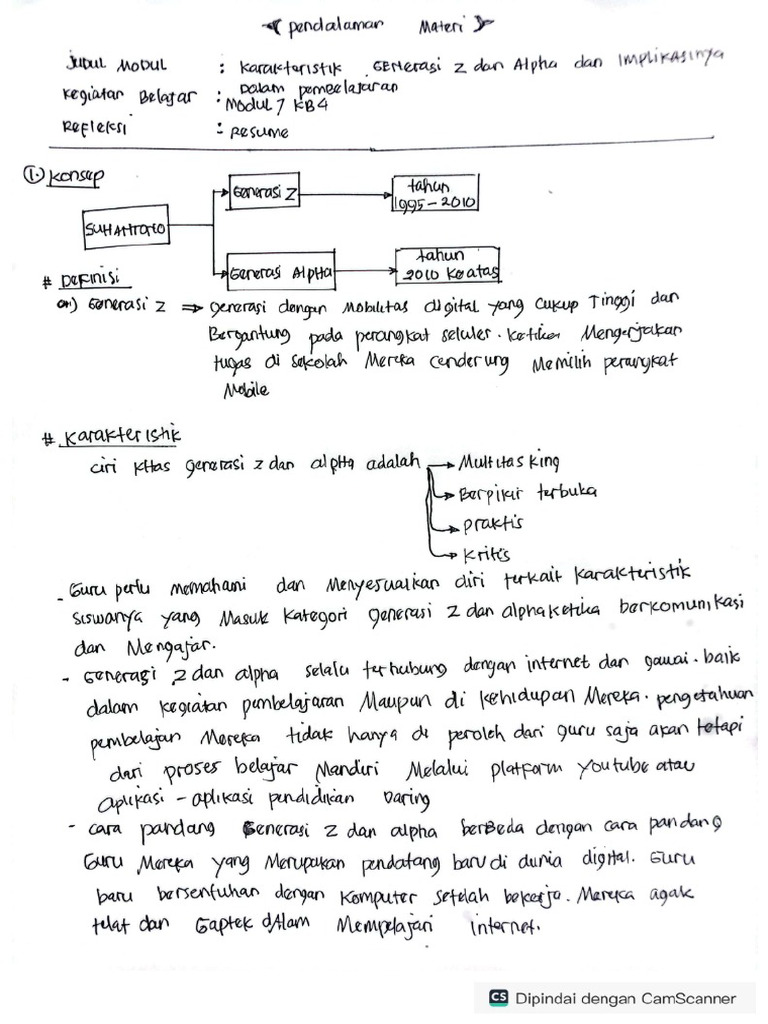 Pendalaman Materi
Judul Modul : Karakteristik Generasi Z dan Alpha dan Implikasinya
Dalam pembelajaran
Kegiatan Belajar : Modul 7 KB4
Refleksi : Resume
1. Konsep
Generasi Z
tahun
1995-2010
Generasi Alpha
tahun
2010 keatas
# Definisi
Generasi Z => generasi dengan Mobilitas digital yang cukup Tinggi dan
Bergantung pada perangkat seluler. Ketika Mengerjakan
tugas di sekolah Mereka cenderung Memilih perangkat
Mobile
# Karakteristik
ciri khas generasi z dan alpha adalah
Multitasking
Berpikir terbuka
praktis
Kritis
- Guru perlu memahami dan Menyesuaikan diri terkait karakteristik
siswanya yang Masuk kategori generasi z dan alpha ketika berkomunikasi
dan Mengajar.
- Generasi z dan alpha selalu terhubung dengan internet dan gawai. baik
dalam kegiatan pembelajaran Maupun di kehidupan Mereka. pengetahuan
pembelajan Mereka tidak hanya di peroleh dari guru saja akan tetapi
dari proses belajar Mandiri Melalui platform youtube atau
aplikasi - aplikasi pendidikan Daring
- cara pandang Generasi Z dan alpha berbeda dengan cara pandang
Guru Mereka yang Merupakan pendatang baru di dunia digital. Guru
baru bersentuhan dengan komputer setelah bekerja. Mereka agak
telat dan Gaptek dalam Mempelajari internet.
CS Dipindai dengan CamScanner